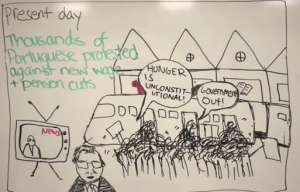 Present day
Thousands of
Portuguese protested
against new wage
+ pension cuts
HUNGER
IS
UNCONSTIT-
UTIONAL!
Government
OUT!
NEWS